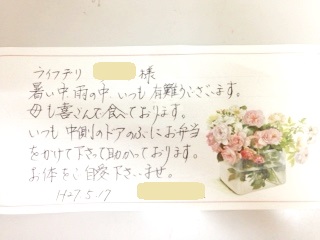 ライフデリ 様
暑い中、雨の中 いつも有難うございます。
母も喜んで食べております。
いつも 中側のドアのぶにお弁当
をかけて下さって助かっております。
お体をご自愛下さいませ。
5.17